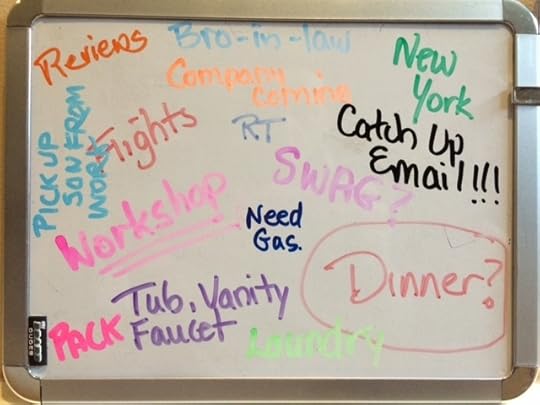 Reviews
Bro-in-law
New
York
Company
Coming
PICK UP
SON FROM
WORK
Flights
RT
Catch Up
Email!!!
SWAG?
Workshop
Need
Gas.
Dinner?
Tub, Vanity
Faucet
PACK
Laundry